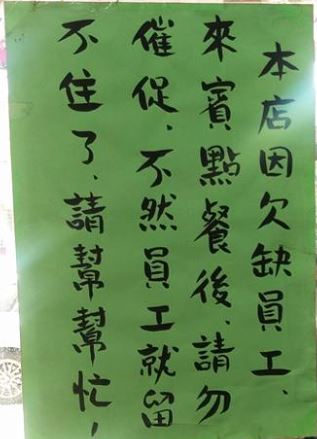 本店因欠缺員工、
來賓點餐後、請勿
催促、不然員工就留
不住了、請幫幫忙，